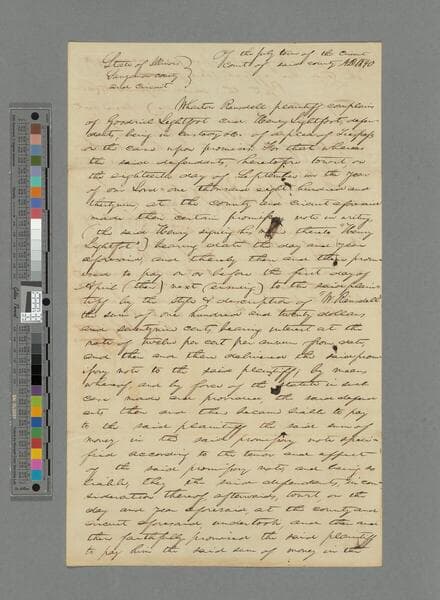 State of Illinois
Sangamon County
and Circuit
Of the July term of the Circuit
Court of said county AD 1840
Wharton Ransdell plaintiff complains
of Goodrich Lightfoot and Henry Lightfoot, defen-
dants, being in custody &c. of a plea of Trespass
on the case upon promises: For that whereas
the said defendants, heretofore towit on
the eighteenth day of September in the year
of our Lord one thousand eight hundred and
thirty, at the county and circuit aforesaid
made their certain promissory note in writing
(the said Henry signing his name thereto "Henry
Lightfoot") bearing date the day and year
aforesaid, and thereby then and there prom-
ised to pay on or before the first day of
April (then) next (ensuing) to the said plain-
tiff by the style & description of "W. Ransdell"
the sum of one hundred and twenty dollars
and seventynine cents, bearing interest at the
rate of twelve per cent per annum from date,
and then and there delivered the said prom-
issory note to the said plaintiff; by means
whereof and by force of the statute in such
case made and provided, the said defend-
ants then and there became liable to pay
to the said plaintiff the said sum of
money in the said promissory note speci-
fied according to the tenor and effect
of the said promissory note, and being so
liable, they the said defendants, in con-
sideration thereof afterwards, towit on the
day and year aforesaid, at the county and
circuit aforesaid, undertook and then and
there faithfully promised the said plaintiff
to pay him the said sum of money in the